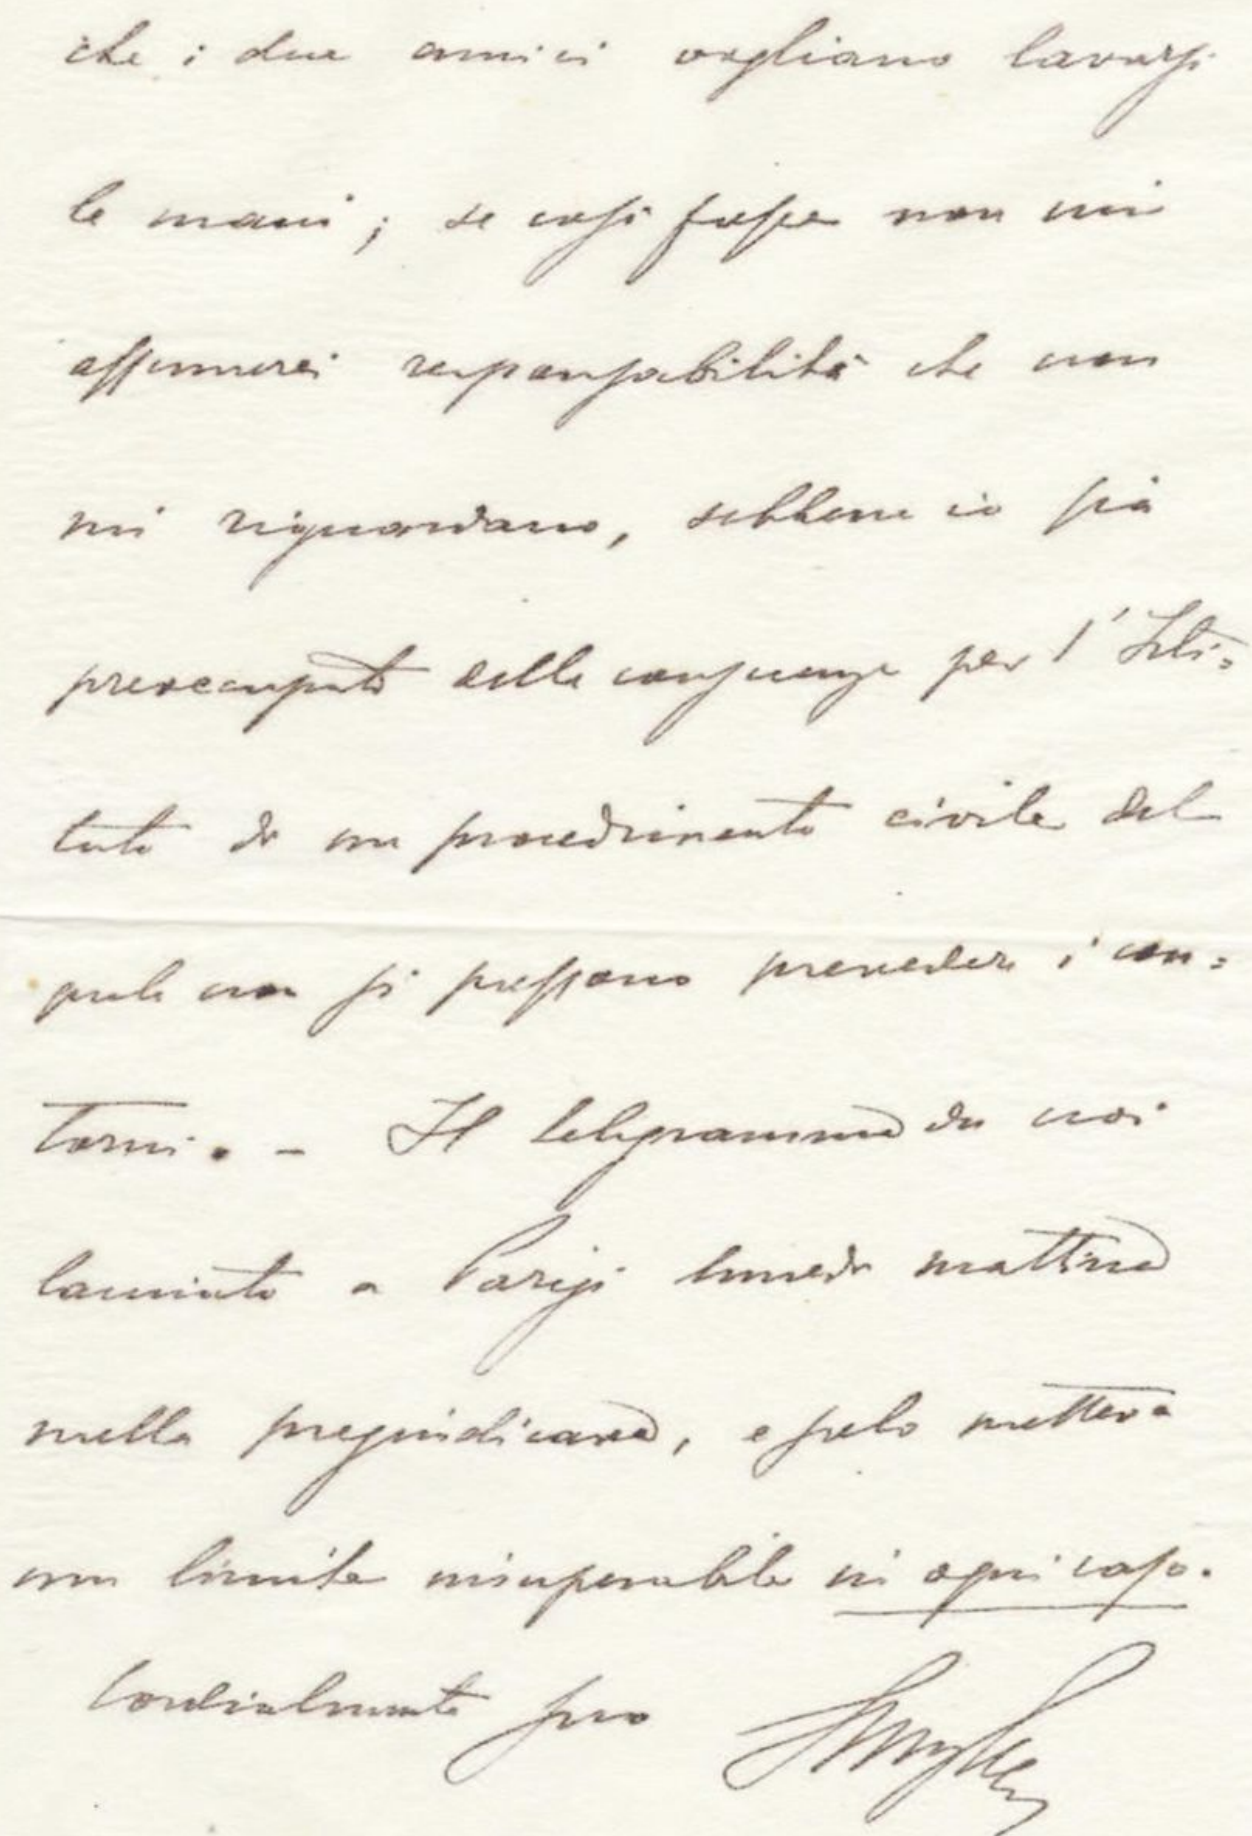 che i due amici vogliano lavarsi
le mani; se così fosse non mi
assumerei responsabilità che non
mi riguardano, sebbene io sia
preoccupato delle conseguenze per l'Isti=
tuto di un procedimento civile del
quale non si possono prevedere i con=
torni. - Il telegramma da noi
lanciato a Parigi lunedì mattina
nulla pregiudicava, e solo metteva
un limite insuperabile in ogni caso.
Cordialmente suo